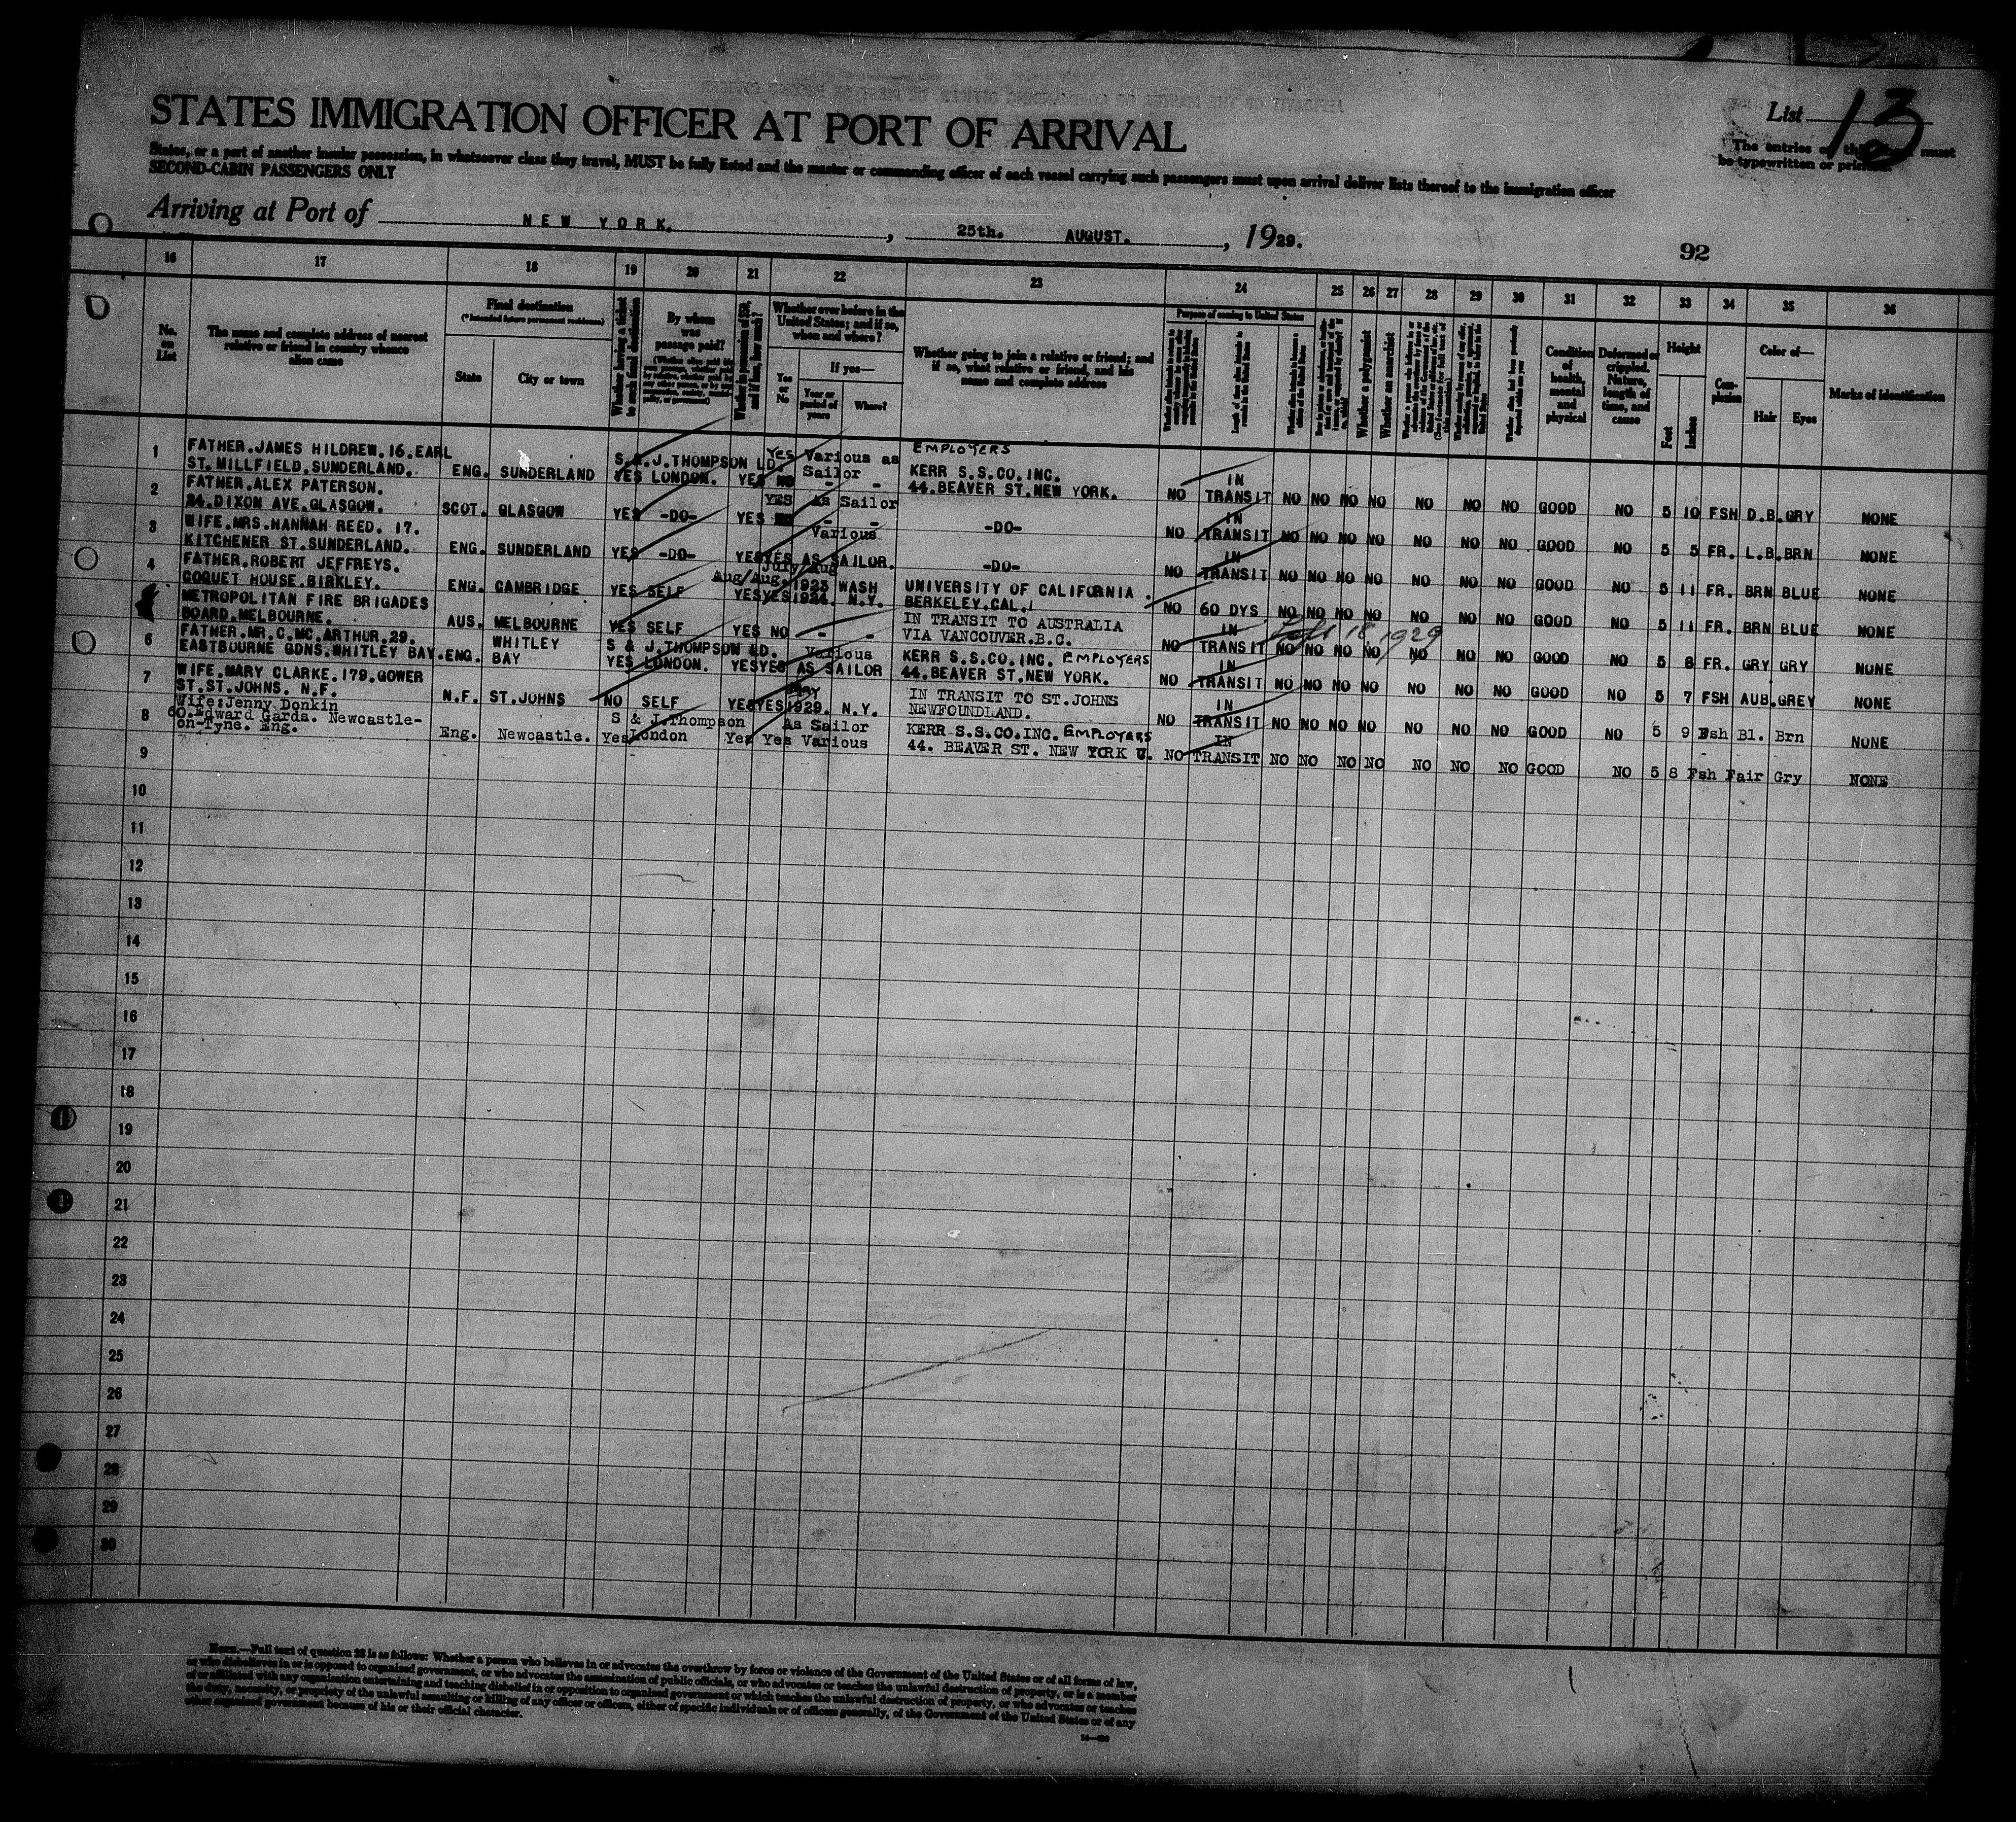 STATES IMMIGRATION OFFICER AT PORT OF ARRIVAL
List 13
The entries on this must
be typewritten or printed.
States, or a part of another insular possession, in whatsoever class they travel, MUST be fully listed and the master or commanding officer of each vessel carrying such passengers must upon arrival deliver lists thereof to the immigration officer
SECOND-CABIN PASSENGERS ONLY
Arriving at Port of NEW YORK. , 25th. AUGUST. , 1929.
92
16 17 18 19 20 21 22 23 24 25 26 27 28 29 30 31 32 33 34 35 36
No. on List
The name and complete address of nearest relative or friend in country whence alien came
Final destination
(*Intended future permanent residence)
State
City or town
Whether having a ticket to such final destination
By whom was passage paid?
Whether ever before in the United States; and if so, when and where?
Yes or No
If yes—
Year or period of years
Where?
Whether going to join a relative or friend; and if so, what relative or friend, and his name and complete address
Purpose of coming to United States
Whether a polygamist
Whether an anarchist
Condition of health, mental and physical
Deformed or crippled. Nature, length of time, and cause
Height
Feet
Inches
Com-plexion
Color of—
Hair
Eyes
Marks of identification
1 FATHER.JAMES HILDREW.16.EARL
ST.MILLFIELD.SUNDERLAND. ENG. SUNDERLAND YES S.& J.THOMPSON LD. LONDON. YES NO Yes Various as Sailor EMPLOYERS KERR S.S.CO.INC. 44.BEAVER ST.NEW YORK. NO IN TRANSIT NO NO NO NO NO NO NO GOOD NO 5 10 FSH D.B. GRY NONE
2 FATHER.ALEX PATERSON.
24.DIXON AVE.GLASGOW. SCOT. GLASGOW YES -DO- YES YES As Sailor -DO- NO IN TRANSIT NO NO NO NO NO NO NO GOOD NO 5 5 FR. L.B. BRN NONE
3 WIFE.MRS.HANNAH REED. 17.
KITCHENER ST.SUNDERLAND. ENG. SUNDERLAND YES -DO- YES YES Various AS SAILOR. -DO- NO IN TRANSIT NO NO NO NO NO NO NO GOOD NO 5 11 FR. BRN BLUE NONE
4 FATHER.ROBERT JEFFREYS.
COQUET HOUSE.BIRKLEY. ENG. CAMBRIDGE YES SELF YES YES July/Aug Aug/Aug. 1923 WASH 1924. N.Y. UNIVERSITY OF CALIFORNIA. BERKELEY.CAL. NO 60 DYS NO NO NO NO NO NO NO GOOD NO 5 11 FR. BRN BLUE NONE
METROPOLITAN FIRE BRIGADES
BOARD.MELBOURNE. AUS. MELBOURNE YES SELF YES NO - - IN TRANSIT TO AUSTRALIA VIA VANCOUVER.B.C. NO IN TRANSIT NO NO NO NO NO NO NO GOOD NO 5 8 FR. GRY GRY NONE
6 FATHER.MR.C.MC.ARTHUR.29.
EASTBOURNE GDNS.WHITLEY BAY. ENG. WHITLEY BAY YES S & J.THOMPSON LD. LONDON. YES YES Various AS SAILOR KERR S.S.CO.INC. EMPLOYERS 44.BEAVER ST.NEW YORK. NO IN TRANSIT NO NO NO NO NO NO NO GOOD NO 5 7 FSH AUB. GREY NONE
7 WIFE.MARY CLARKE.179.GOWER
ST.ST.JOHNS. N.F. N.F. ST.JOHNS NO SELF YES YES May 1929. N.Y. IN TRANSIT TO ST.JOHNS NEWFOUNDLAND. NO IN TRANSIT NO NO NO NO NO NO NO GOOD NO 5 9 Fsh Bl. Brn NONE
8 Wife:Jenny Donkin
60.Edward Gards. Newcastle-
on-Tyne. Eng. Eng. Newcastle. Yes S & J.Thompson London Yes Yes As Sailor Various KERR S.S.CO.INC. EMPLOYERS 44. BEAVER ST. NEW YORK NO IN TRANSIT NO NO NO NO NO NO NO GOOD NO 5 8 Fsh Fair Gry NONE
9
10
11
12
13
14
15
16
17
18
19
20
21
22
23
24
25
26
27
28
29
30
NOTE.—Full text of question 28 is as follows: Whether a person who believes in or advocates the overthrow by force or violence of the Government of the United States or of all forms of law,
or who disbelieves in or is opposed to organized government, or who advocates the assassination of public officials, or who advocates or teaches the unlawful destruction of property, or is a member
of or affiliated with any organization entertaining and teaching disbelief in or opposition to organized government or which teaches the unlawful destruction of property, or who advocates or teaches
the duty, necessity, or propriety of the unlawful assaulting or killing of any officer or officers, either of specific individuals or of officers generally, of the Government of the United States or of any
other organized government because of his or their official character.